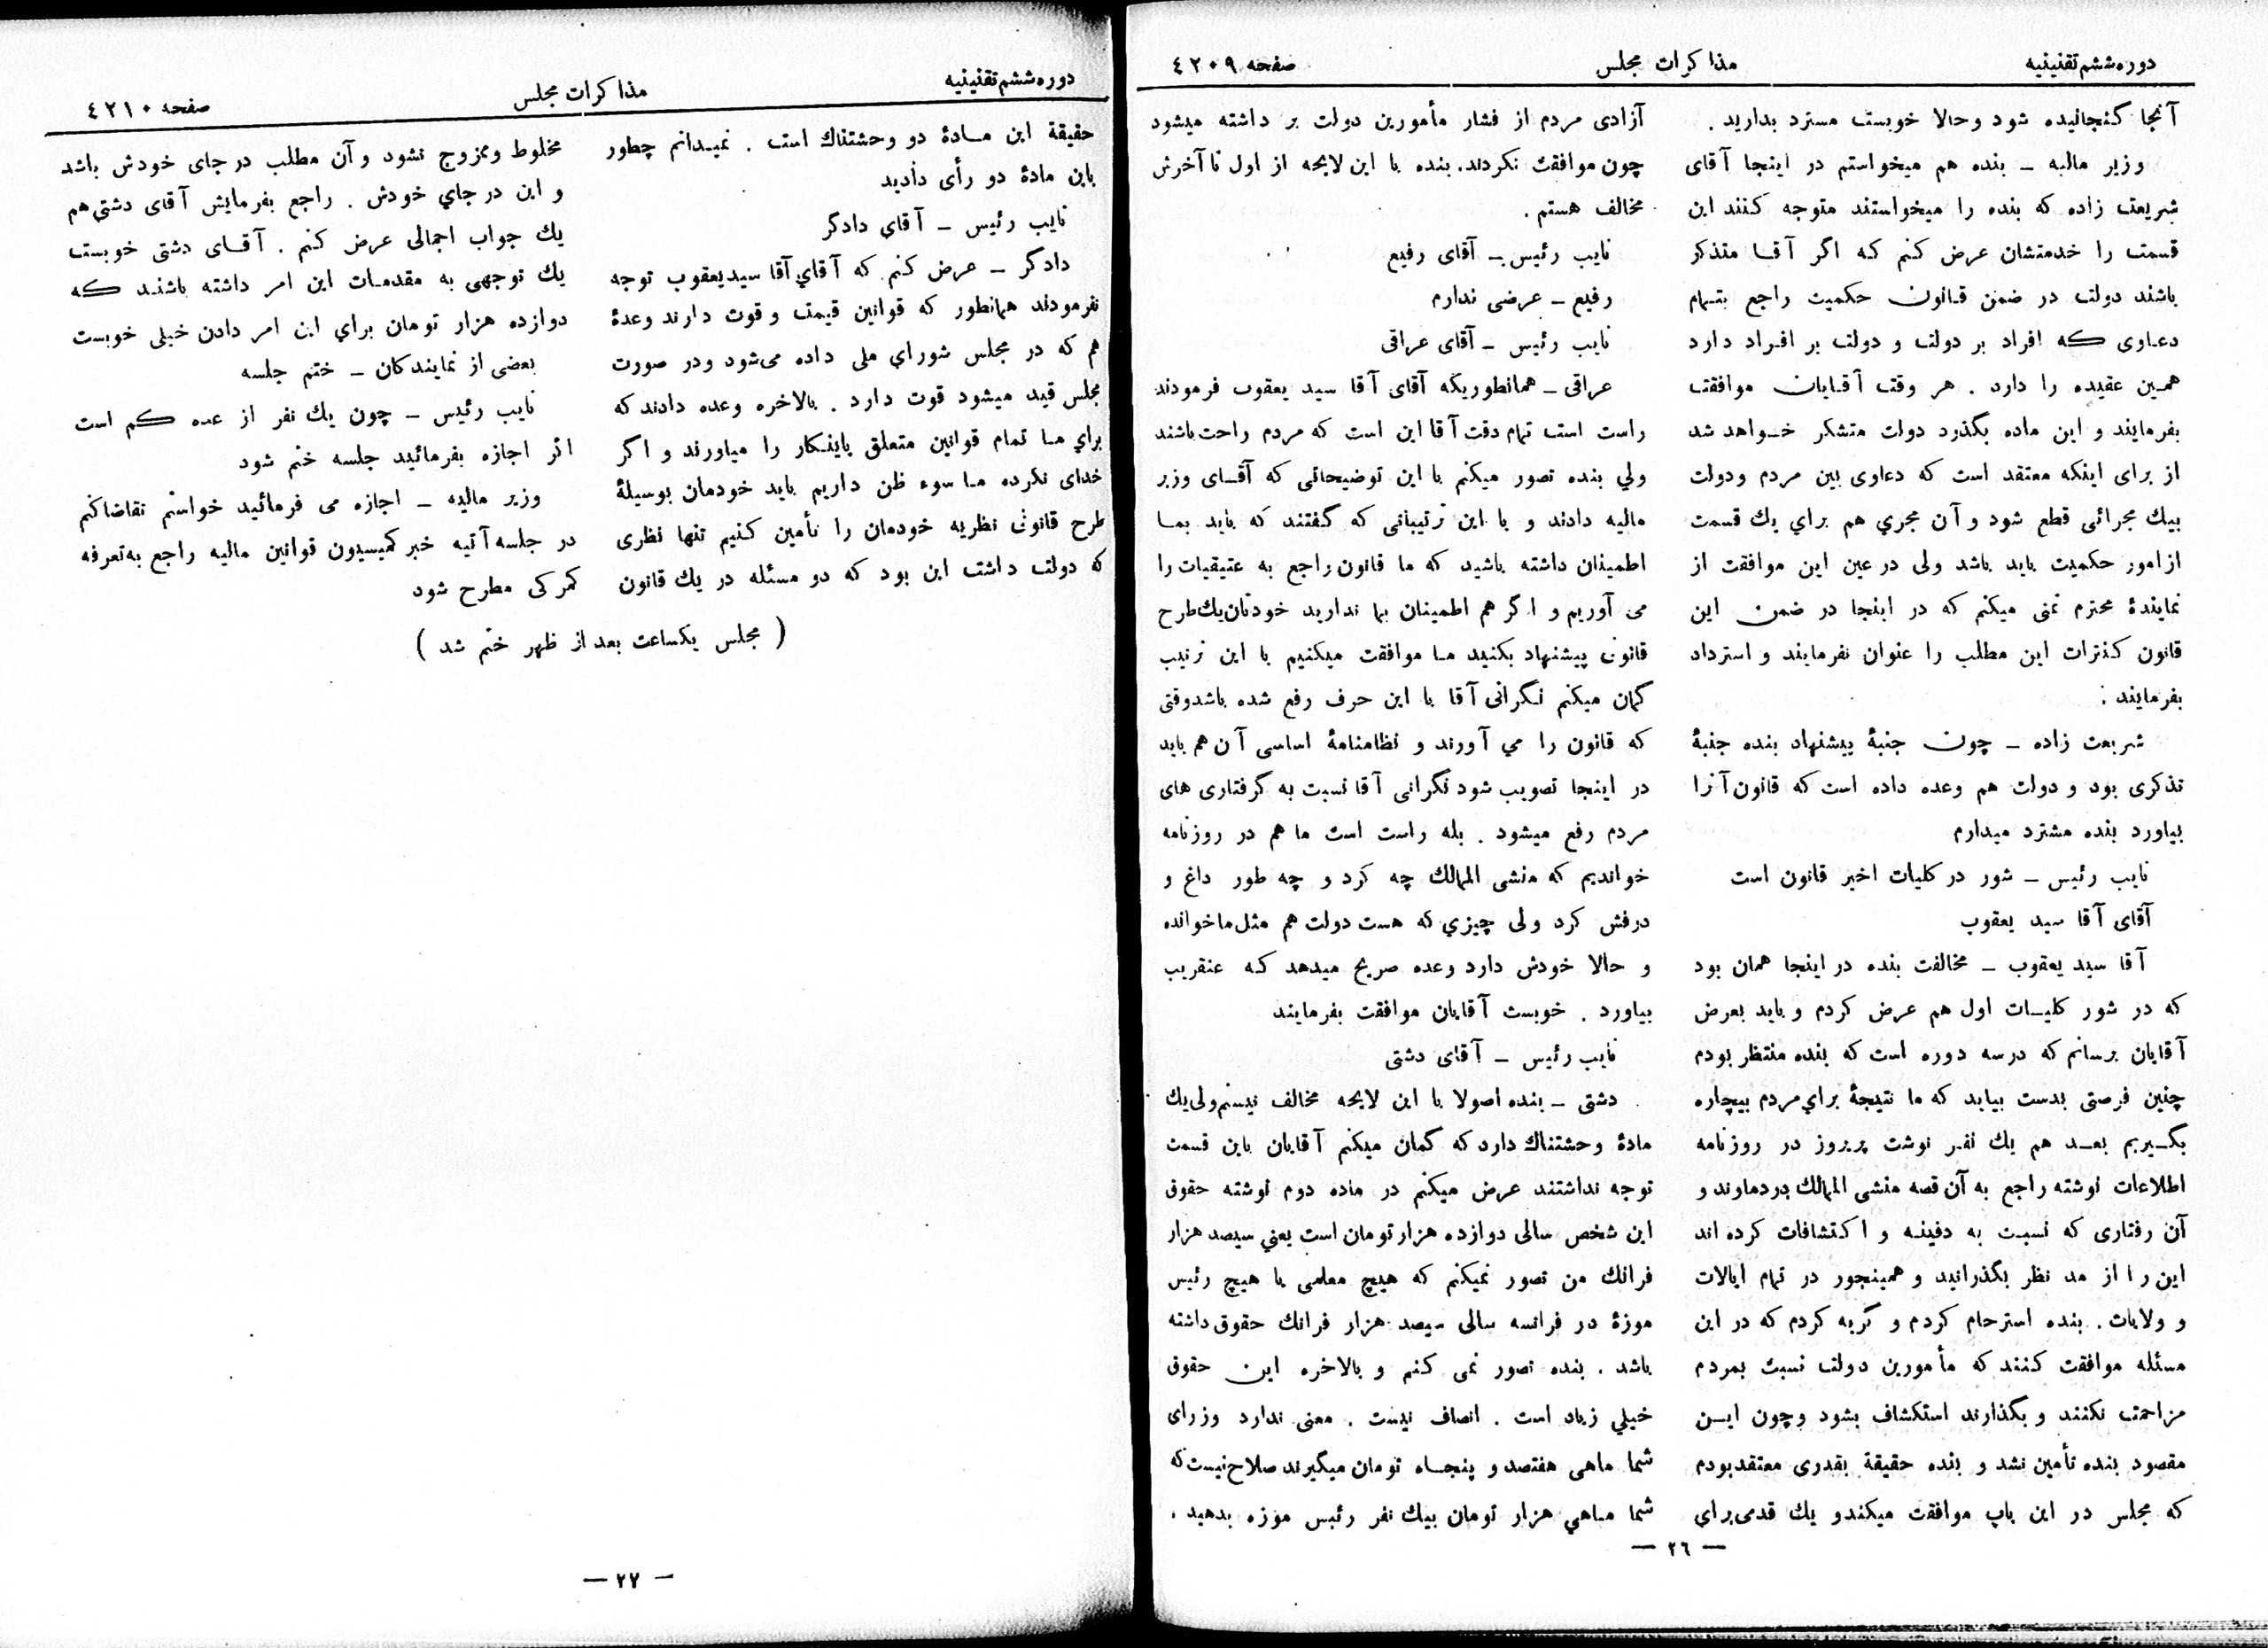 دوره ششم تقنینیه
مذاکرات مجلس
صفحه ٤٢٠٩
آنجا گنجانیده شود وحالا خوبست مسترد بدارید .
وزیر مالیه ـ بنده هم میخواستم در اینجا آقای
شریعت زاده که بنده را میخواستند متوجه کنند این
قسمت را خدمتشان عرض کنم که اگر آقا متذکر
باشند دولت در ضمن قانون حکمیت راجع بتمام
دعاوی که افراد بر دولت و دولت بر افراد دارد
همین عقیده را دارد . هر وقت آقایان موافقت
بفرمایند و این ماده بگذرد دولت متشکر خواهد شد
از برای اینکه معتقد است که دعاوی بین مردم ودولت
بیك مجرائی قطع شود و آن مجري هم براي يك قسمت
از امور حکمیت باید باشد ولی در عین این موافقت از
نمایندهٔ محترم تمنی میکنم که در اینجا در ضمن این
قانون کنترات این مطلب را عنوان نفرمایند و استرداد
بفرمایند :
شریعت زاده ـ چون جنبهٔ پیشنهاد بنده جنبهٔ
تذکری بود و دولت هم وعده داده است که قانون آنرا
بیاورد بنده مشترد میدارم
نایب رئیس ـ شور در کلیات اخیر قانون است
آقای آقا سید یعقوب
آقا سید یعقوب ـ مخالفت بنده در اینجا همان بود
که در شور کلیات اول هم عرض کردم و باید بعرض
آقایان برسانم که درسه دوره است که بنده منتظر بودم
چنین فرصتی بدست بیاید که ما نتیجهٔ براي مردم بیچاره
بگیریم بعد هم یك نفر نوشت پریروز در روزنامه
اطلاعات نوشته راجع به آن قصه منشی الممالك در دماوند و
آن رفتاری که نسبت به دفینه و اکتشافات کرده اند
این را از مد نظر بگذرانید و همینجور در تمام ایالات
و ولایات . بنده استرحام کردم و گریه کردم که در این
مسئله موافقت کنند که مأمورین دولت نسبت بمردم
مزاحمت نکنند و بگذارند استکشاف بشود وچون این
مقصود بنده تأمین نشد و بنده حقیقة بقدری معتقد بودم
که مجلس در این باب موافقت میکند و یك قدمی براي
آزادی مردم از فشار مأمورین دولت بر داشته میشود
چون موافقت نکردند . بنده با این لایحه از اول تا آخرش
مخالف هستم .
نایب رئیس ـ آقای رفیع
رفیع ـ عرضی ندارم
نایب رئیس ـ آقای عراقی
عراقی ـ همانطوریکه آقای آقا سید یعقوب فرمودند
راست است تمام دقت آقا این است که مردم راحت باشند
ولي بنده تصور میکنم با این توضیحاتی که آقای وزیر
مالیه دادند و با این ترتیباتی که گفتند که باید بما
اطمینان داشته باشید که ما قانون راجع به عتیقیات را
می آوریم و اگر هم اطمینان بما ندارید خودتان یك طرح
قانون پیشنهاد بکنید ما موافقت میکنیم با این ترتیب
گمان میکنم نگرانی آقا با این حرف رفع شده باشد وقتی
که قانون را مي آورند و نظامنامهٔ اساسی آن هم باید
در اینجا تصویب شود نگرانی آقا نسبت به گرفتاری های
مردم رفع میشود . بله راست است ما هم در روزنامه
خواندیم که منشی الممالك چه کرد و چه طور داغ و
درفش کرد ولی چیزي که هست دولت هم مثل ما خوانده
و حالا خودش دارد وعده صریح میدهد که عنقریب
بیاورد . خوبست آقایان موافقت بفرمایند
نایب رئیس ـ آقای دشتی
دشتی ـ بنده اصولا با این لایحه مخالف نیستم ولی یك
مادهٔ وحشتناك دارد که گمان میکنم آقایان باین قسمت
توجه نداشتند عرض میکنم در ماده دوم نوشته حقوق
این شخص سالی دوازده هزار تومان است یعني سیصد هزار
فرانك من تصور نمیکنم که هیچ معلمی یا هیچ رئیس
موزهٔ در فرانسه سالی سیصد هزار فرانك حقوق داشته
باشد . بنده تصور نمی کنم و بالاخره این حقوق
خیلي زیاد است . انصاف نیست . معنی ندارد وزرای
شما ماهی هفتصد و پنجاه تومان میگیرند صلاح نیست که
شما ماهي هزار تومان بیك نفر رئیس موزه بدهید .
— ٢٦ —
دوره ششم تقنینیه
مذاکرات مجلس
صفحه ٤٢١٠
حقیقة این مادهٔ دو وحشتناك است . نمیدانم چطور
باین مادهٔ دو رأی دادید
نایب رئیس ـ آقاي دادگر
دادگر ـ عرض کنم که آقاي آقا سید یعقوب توجه
نفرمودند همانطور که قوانین قیمت و قوت دارند وعدهٔ
هم که در مجلس شوراي ملی داده می‌شود ودر صورت
مجلس قید میشود قوت دارد . بالاخره وعده دادند که
براي ما تمام قوانین متعلق باینکار را میاورند و اگر
خدای نکرده ما سوء ظن داریم باید خودمان بوسیلهٔ
طرح قانونی نظریه خودمان را تأمین کنیم تنها نظری
که دولت داشت این بود که دو مسئله در یك قانون
مخلوط وممزوج نشود و آن مطلب در جای خودش باشد
و این در جاي خودش . راجع بفرمایش آقای دشتی هم
یك جواب اجمالی عرض کنم . آقای دشتی خوبست
یك توجهی به مقدمات این امر داشته باشند که
دوازده هزار تومان براي این امر دادن خیلی خوبست
بعضی از نمایندگان ـ ختم جلسه
نایب رئیس ـ چون یك نفر از عده کم است
اگر اجازه بفرمائید جلسه ختم شود
وزیر مالیه ـ اجازه می فرمائید خواستم تقاضا کنم
در جلسه آتیه خبر کمیسیون قوانین مالیه راجع به تعرفه
گمرکی مطرح شود
( مجلس یکساعت بعد از ظهر ختم شد )
— ٢٧ —